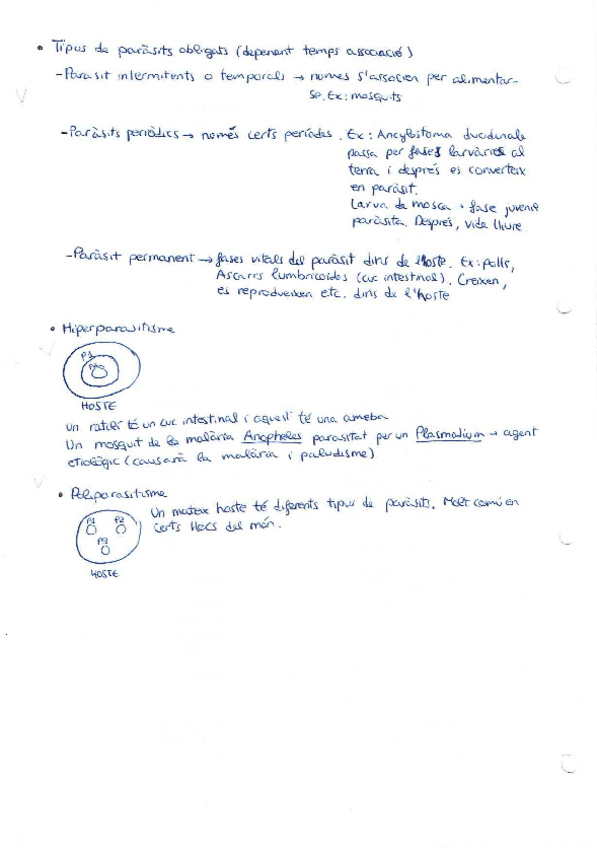 • Tipus de paràsits obligats (depenent temps associació)
- Paràsit intermitents o temporals → només s'associen per alimentar-
se. Ex: mosquits
- Paràsits periòdics → només certs períodes. Ex: Ancylostoma duodenale
passa per fases larvàries al
terra i després es converteix
en paràsit.
Larva de mosca → fase juvenil
paràsita. Després, vida lliure
- Paràsit permanent → fases vitals del paràsit dins de l'hoste. Ex: polls,
Ascaris lumbricoides (cuc intestinal). Creixen,
es reprodueixen etc. dins de l'hoste
• Hiperparasitisme
P1
P2
HOSTE
Un ratolí té un cuc intestinal i aquell té una ameba
Un mosquit de la malària Anopheles parasitat per un Plasmodium → agent
etiològic (causarà la malària i paludisme)
• Poliparasitisme
Un mateix hoste té diferents tipus de paràsits. Molt comú en
certs llocs del món.
P1 P2
P3
HOSTE